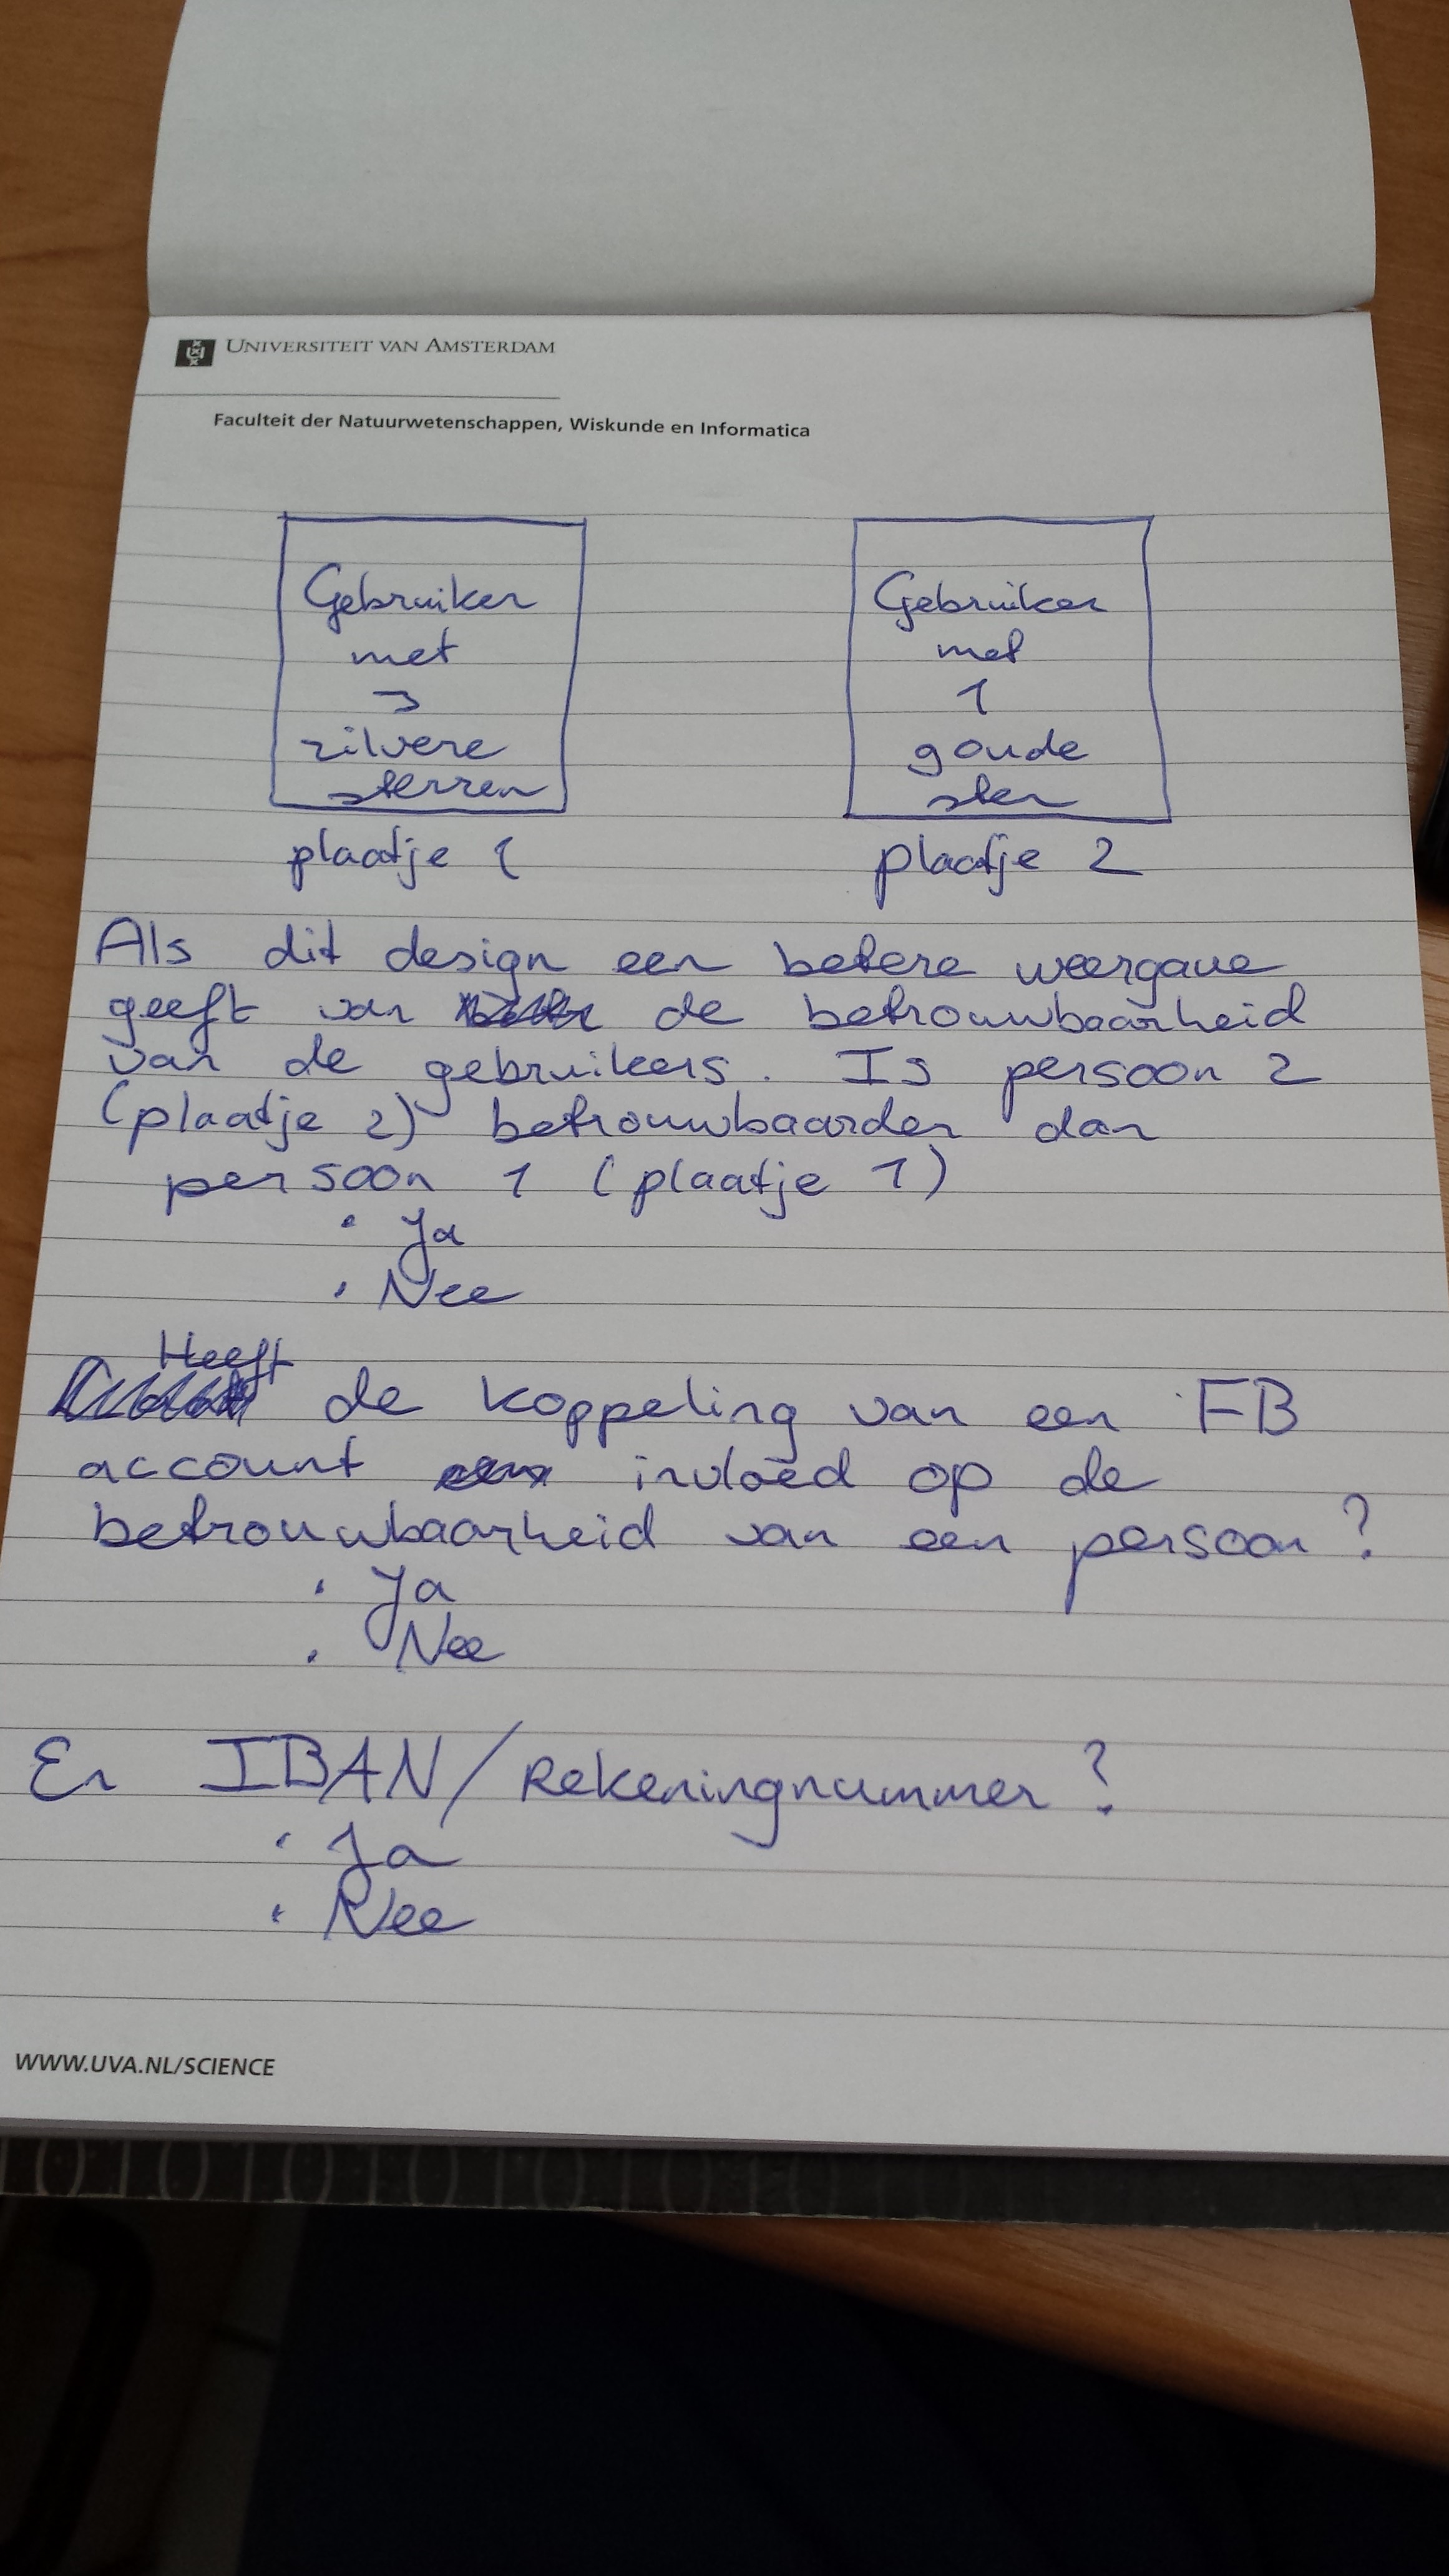 UNIVERSITEIT VAN AMSTERDAM
Faculteit der Natuurwetenschappen, Wiskunde en Informatica
Gebruiker
met
3
zilvere
sterren
plaatje 1
Gebruiker
met
1
goude
ster
plaatje 2
Als dit design een betere weergave
geeft van de betrouwbaarheid
van de gebruikers. Is persoon 2
(plaatje 2) betrouwbaarder dan
persoon 1 (plaatje 1)
• Ja
• Nee
Heeft
de koppeling van een FB
account invloed op de
betrouwbaarheid van een persoon?
• Ja
• Nee
En IBAN/Rekeningnummer?
• Ja
• Nee
WWW.UVA.NL/SCIENCE